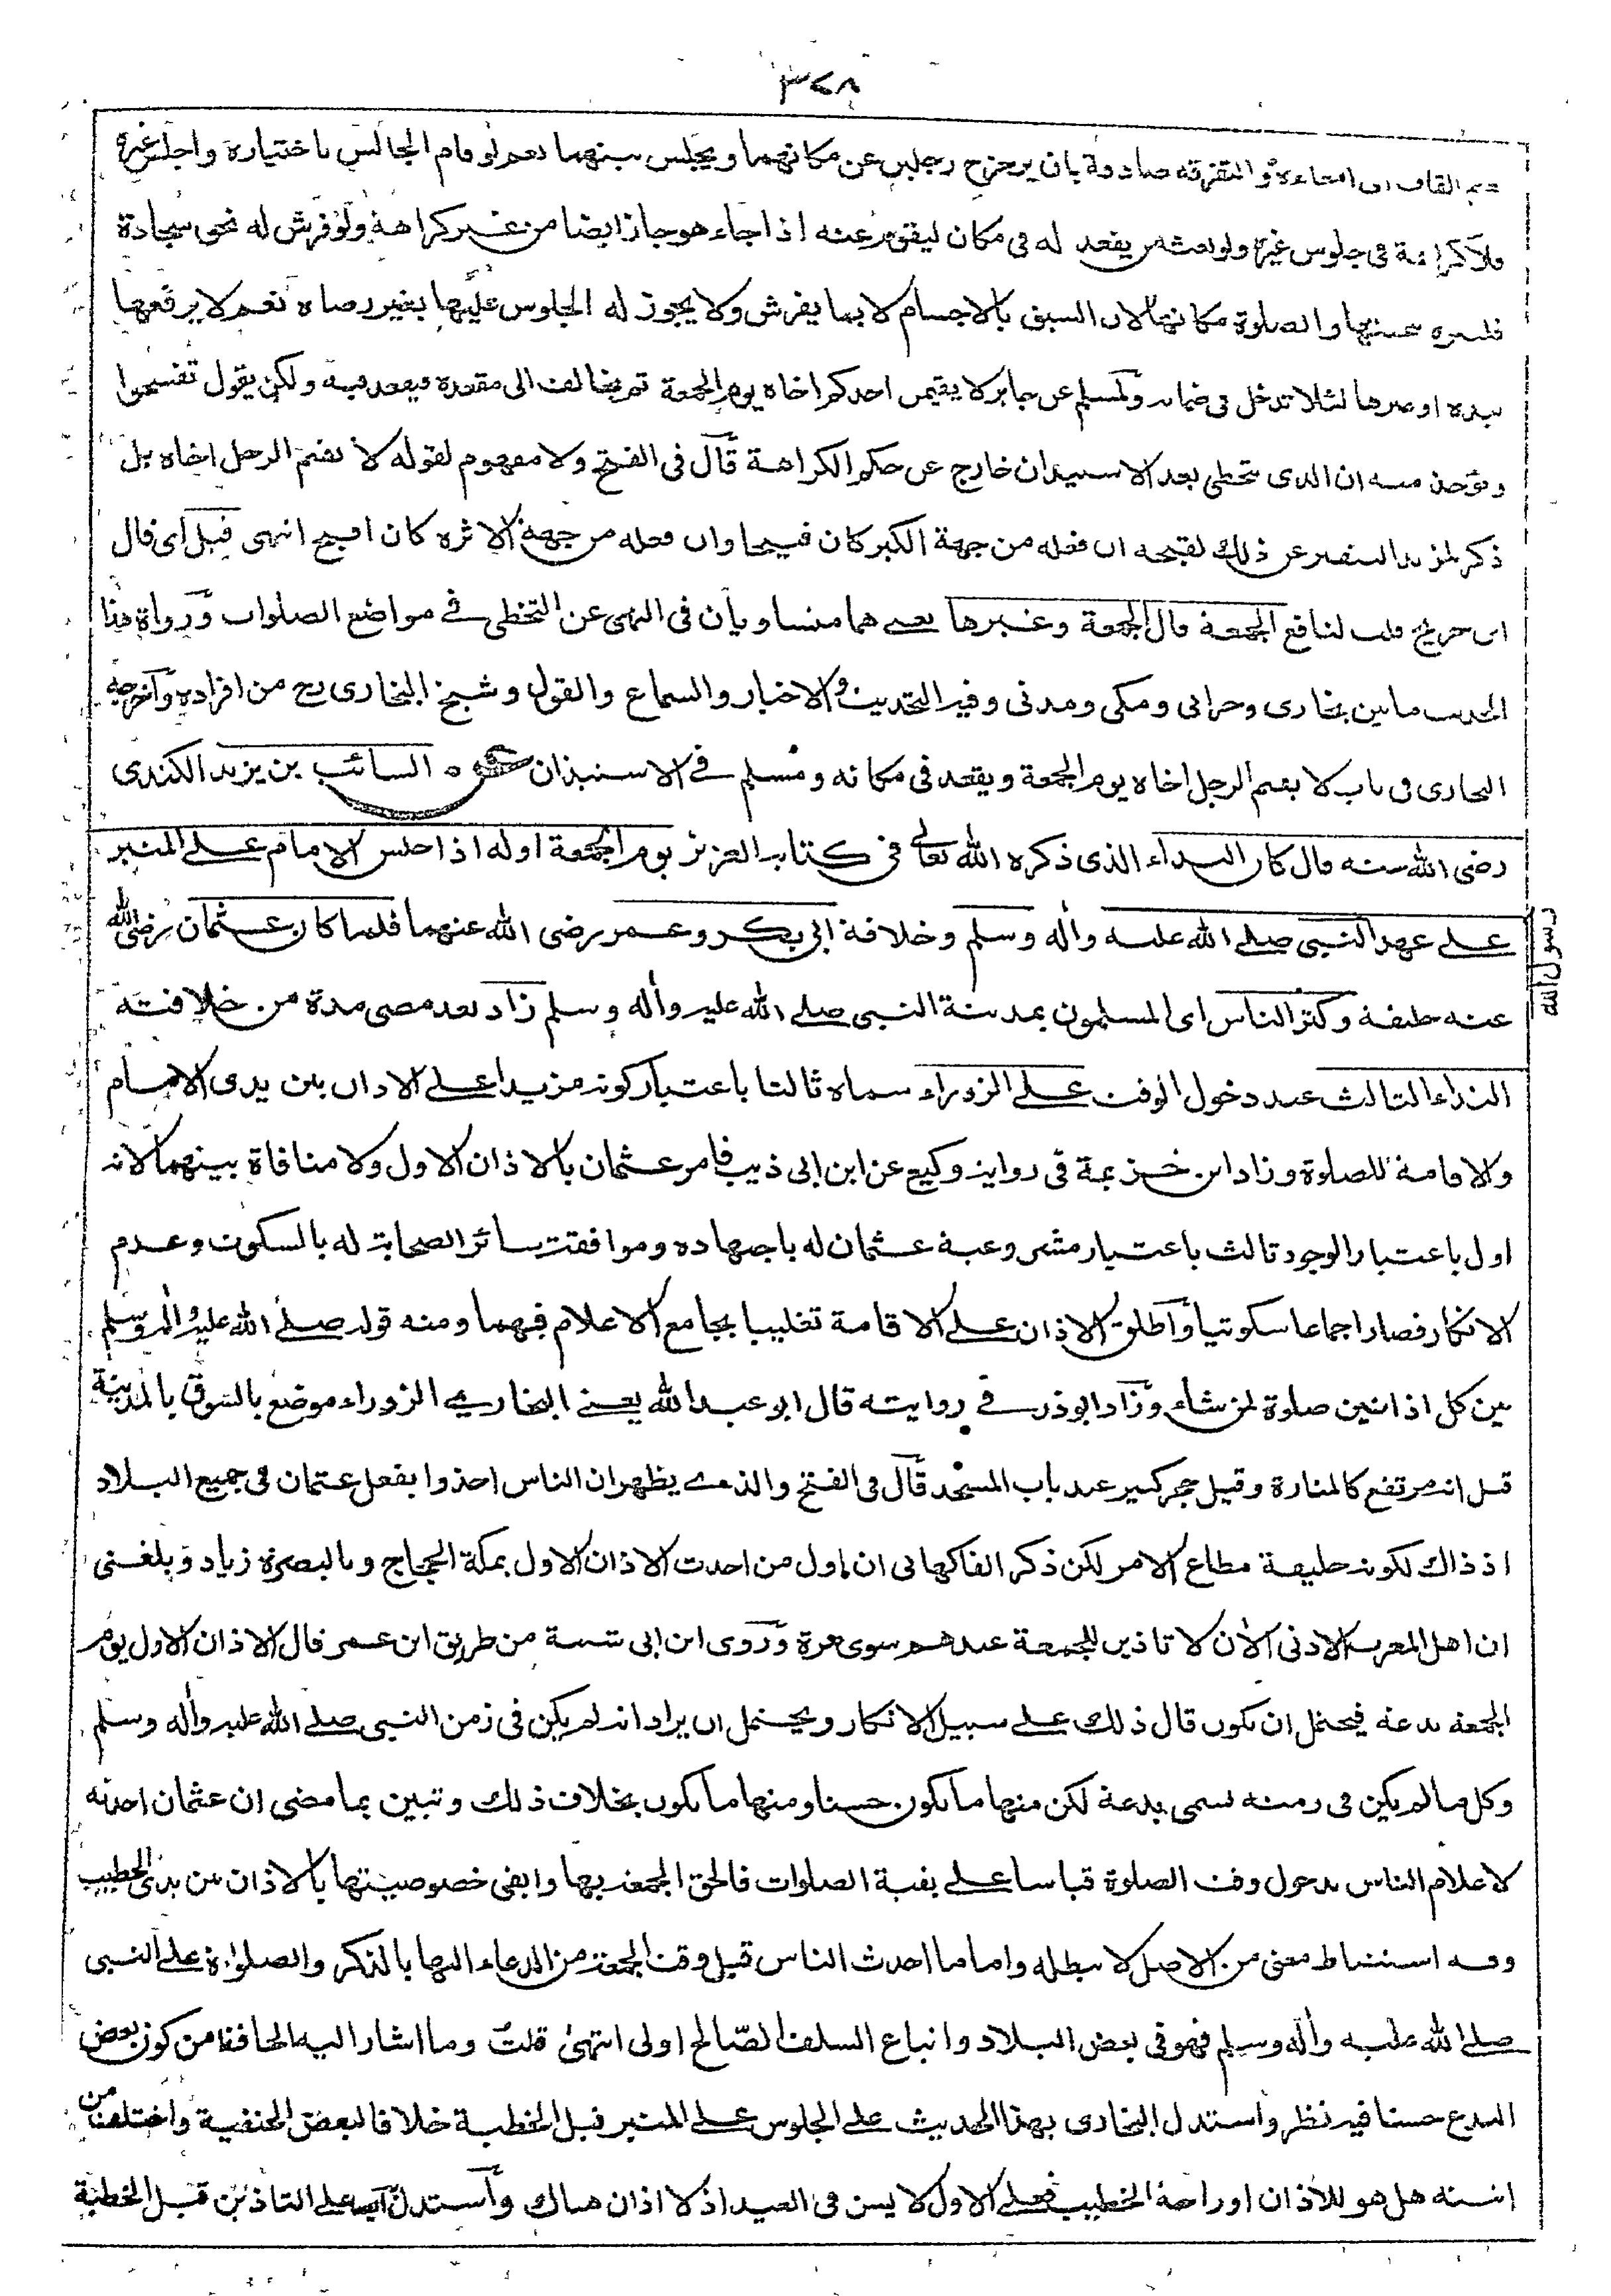 ٣٧٨
القاف اى والتفرقة صادقة بان يزحزح رجلين عن مكانهما ويجلس بينهما نعم لو قام الجالس باختياره واجلس غيره
فلا كراهة فى جلوس غيره ولو بعث من يقعد له فى مكان ليقوم عنه اذا جاء هو جاز ايضا من غير كراهة ولو فرش له نحو سجادة
فلغيره تنحيتها والصلوة مكانها لان السبق بالاجسام لا بما يفرش ولا يجوز له الجلوس عليها بغير رضاه نعم لا يرفعها
بيده او غيرها لئلا تدخل فى ضمانه ولمسلم عن جابر لا يقيمن احدكم اخاه يوم الجمعة ثم يخالف الى مقعده فيقعد فيه ولكن يقول تفسحوا
ويؤخذ منه ان الذى يتخطى بعد الاستيذان خارج عن حكم الكراهة قال فى الفتح ولا مفهوم لقوله لا يقيم الرجل اخاه بل
ذكر لمزيد التنفير عن ذلك لقبحه ان فعله من جهة الكبر كان قبيحا وان فعله من جهة الاثرة كان اقبح انتهى قيل اى قال
ابن جريج قلت لنافع الجمعة قال الجمعة وغيرها يعنى هما متساويان فى النهى عن التخطى فى مواضع الصلوات ورواة هذا
الحديث مابين بخارى وحرانى ومكى ومدنى وفيه التحديث والاخبار والسماع والقول وشيخ البخارى رح من افراده واخرجه
البخارى فى باب لا يقيم الرجل اخاه يوم الجمعة ويقعد فى مكانه ومسلم فى الاستيذان عن السائب بن يزيد الكندى
رضى الله عنه قال كان النداء الذى ذكره الله تعالى فى كتابه العزيز يوم الجمعة اوله اذا جلس الامام على المنبر
على عهد النبى صلى الله عليه وأله وسلم وخلافة ابى بكر وعمر رضى الله عنهما فلما كان عثمان رضى الله
رسول الله
عنه خليفة وكثر الناس اى المسلمون بمدينة النبى صلى الله عليه وأله وسلم زاد بعد مضى مدة من خلافته
النداء الثالث عند دخول الوقت على الزوراء سماه ثالثا باعتبار كونه مزيدا على الاذان بين يدى الامام
والاقامة للصلوة وزاد ابن خزيمة فى رواية وكيع عن ابن ابى ذيب فامر عثمان بالاذان الاول ولا منافاة بينهما لانه
اول باعتبار الوجود ثالث باعتبار مشروعية عثمان له باجتهاده وموافقة سائر الصحابة له بالسكوت وعدم
الانكار فصار اجماعا سكوتيا واطلق الاذان على الاقامة تغليبا بجامع الاعلام فيهما ومنه قوله صلى الله عليه وأله وسلم
بين كل اذانين صلوة لمن شاء وزاد ابو ذر فى روايته قال ابو عبد الله يعنى البخارى الزوراء موضع بالسوق بالمدينة
قيل انه مرتفع كالمنارة وقيل حجر كبير عند باب المسجد قال فى الفتح والذى يظهر ان الناس اخذوا بفعل عثمان فى جميع البلاد
اذ ذاك لكونه خليفة مطاع الامر لكن ذكر الفاكهانى ان اول من احدث الاذان الاول بمكة الحجاج وبالبصرة زياد وبلغنى
ان اهل المغرب الادنى الأن لا تاذين للجمعة عندهم سوى مرة وروى ابن ابى شيبة من طريق ابن عمر قال الاذان الاول يوم
الجمعة بدعة فيحتمل ان يكون قال ذلك على سبيل الانكار ويحتمل ان يراد انه لم يكن فى زمن النبى صلى الله عليه وأله وسلم
وكل ما لم يكن فى زمنه تسمى بدعة لكن منها ما يكون حسنا ومنها ما يكون بخلاف ذلك وتبين بما مضى ان عثمان احدثه
لاعلام الناس بدخول وقت الصلوة قياسا على بقية الصلوات فالحق الجمعة بها وابقى خصوصيتها بالاذان بين يدى الخطيب
وفيه استنباط معنى من الاصل لا يبطله واما ما احدث الناس قبل وقت الجمعة من الدعاء اليها بالذكر والصلوة على النبى
صلى الله عليه وأله وسلم فهو فى بعض البلاد واتباع السلف الصالح اولى انتهى قلت وما اشار اليه الحافظ من كون بعض
البدع حسنا فيه نظر واستدل البخارى بهذا الحديث على الجلوس على المنبر قبل الخطبة خلافا لبعض الحنفية واختلف من
اثبته هل هو للاذان او راحة الخطيب فعلى الاول لا يسن فى العيد اذ لا اذان هناك واستدل به على التاذين قبل الخطبة